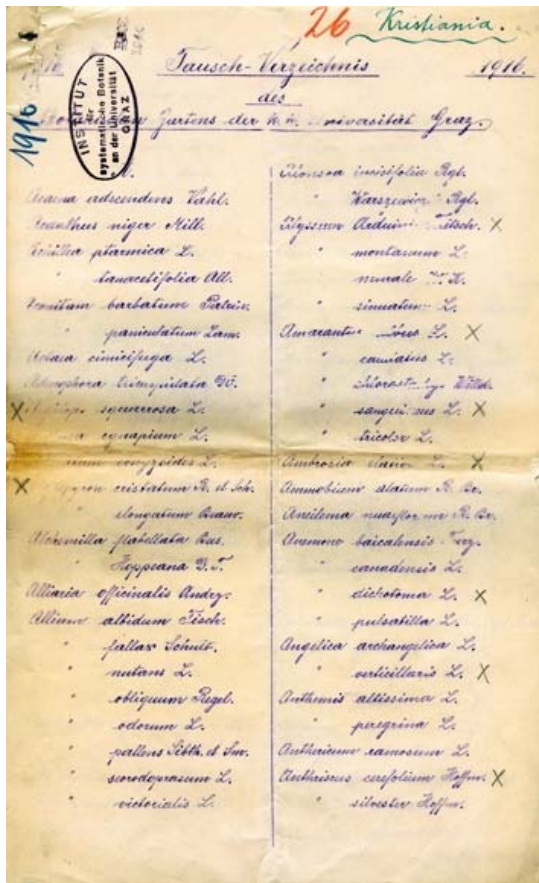 26 Kristiania.
1916
INSTITUT
für
systematische Botanik
an der Universität
GRAZ
Tausch-Verzeichnis 1916.
des
Gartens der k. k. Universität Graz.
Acaena adscendens Vahl.
Acanthus niger Mill.
Achillea ptarmica L.
" tanacetifolia All.
Aconitum barbatum
" paniculatum Lam.
Actaea cimicifuga L.
Adenophora
X squarrosa L.
cynapium L.
conyzoides L.
X cristatum R. et Sch.
elongatum Beauv.
Alchemilla flabellata Bus.
" Hoppeana D. T.
Alliaria officinalis Andrz.
Allium albidum Fisch.
" fallax Schult.
" nutans L.
" obliquum Regel.
" odorum L.
" pallens Sibth. et Sm.
" scorodoprasum L.
" victorialis L.
Rgl.
Warszewicz. Rgl.
Alyssum Arduini Fritsch. X
" montanum L.
" murale W. K.
" sinuatum L.
Amarantus L. X
" caudatus L.
" Willd.
" sanguineus L. X
" tricolor L.
Ambrosia elatior L. X
Ammobium alatum R. Br.
Aneilema R. Br.
Anemone baicalensis Turcz.
" canadensis L.
" dichotoma L. X
" pulsatilla L.
Angelica archangelica L.
" verticillaris L. X
Anthemis altissima L.
" peregrina L.
Anthericum ramosum L.
Anthriscus cerefolium Hoffm. X
" silvester Hoffm.